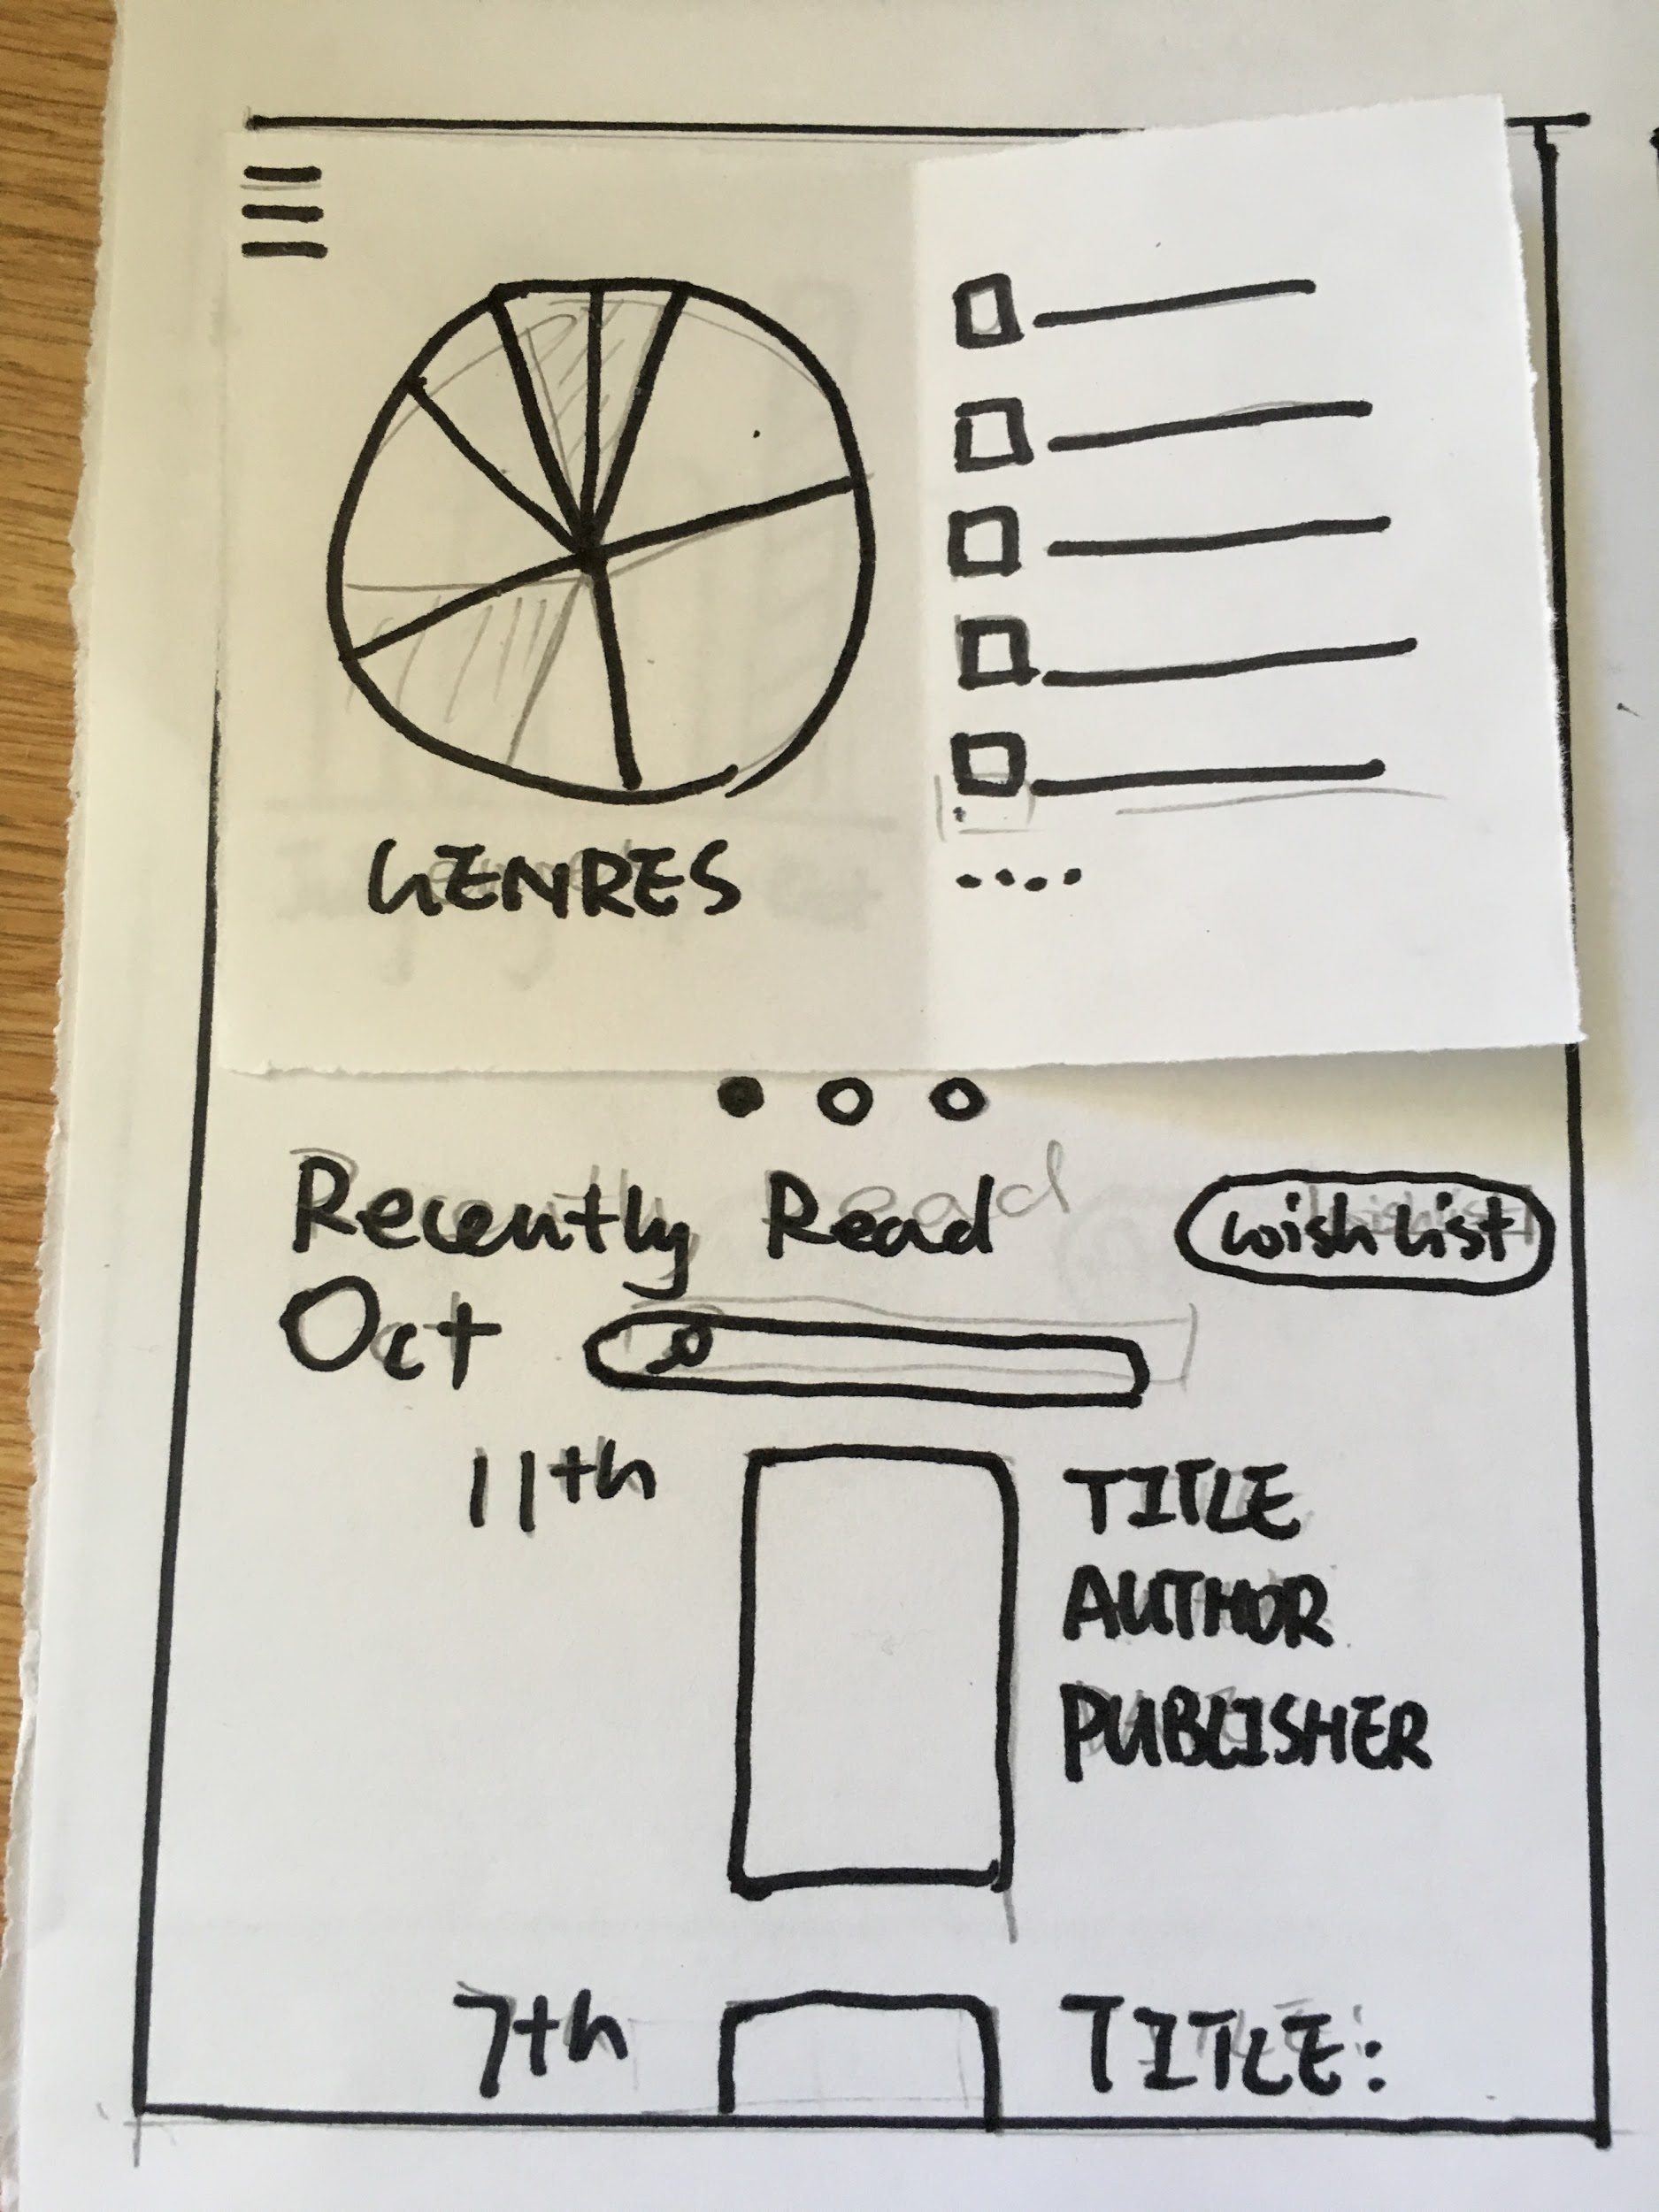 GENRES
Recently Read
wish list
Oct
11th
TITLE
AUTHOR
PUBLISHER
7th
TITLE: